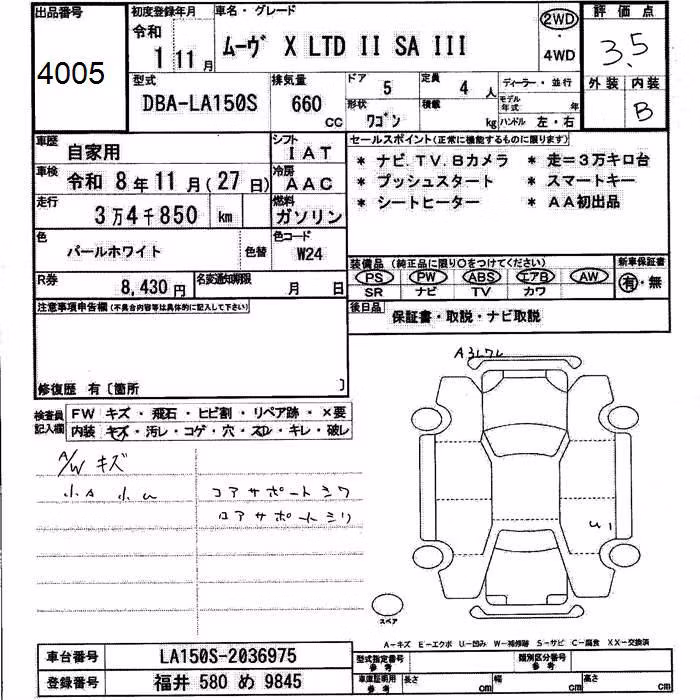 出品番号
4005
初度登録年月
令和
1 11月
車名・グレード
ムーヴ X LTD II SA III
2WD
・
4WD
評価点
3.5
外装 内装
B
型式
DBA-LA150S
排気量
660 cc
ドア
5
定員
4 人
形状
ワゴン
積載
kg
ディーラー・並行
モデル年式 年
ハンドル 左・右
車歴
自家用
シフト
IAT
車検
令和 8年11月(27日)
冷房
AAC
走行
3万4千850 km
燃料
ガソリン
色
パールホワイト
色替
色コード
W24
R券
8,430円
名変通知期限
月 日
セールスポイント(正常に機能するものに限ります)
* ナビ.TV.Bカメラ * 走=3万キロ台
* プッシュスタート * スマートキー
* シートヒーター * AA初出品
装備品(純正品に限り○をつけてください)
PS PW ABS エアB AW
SR ナビ TV カワ
新車保証書
有・無
後日品
保証書・取説・ナビ取説
注意事項申告欄(不具合内容等は具体的に記入して下さい)
修復歴 有〔箇所 〕
検査員記入欄
FW キズ・飛石・ヒビ割・リペア跡・×要
内装 キズ・汚レ・コゲ・穴・スレ・キレ・破レ
A/W キズ
小A 小U
コアサポートシワ
ロアサポートシリ
U1
スペア
A-キズ E-エクボ U-凹み W-補修跡 S-サビ C-腐食 XX-交換済
車台番号
LA150S-2036975
登録番号
福井 580 め 9845
型式指定番号
参考
類別区分番号
参考
車庫証明用
参考
長さ cm
幅 cm
高さ cm